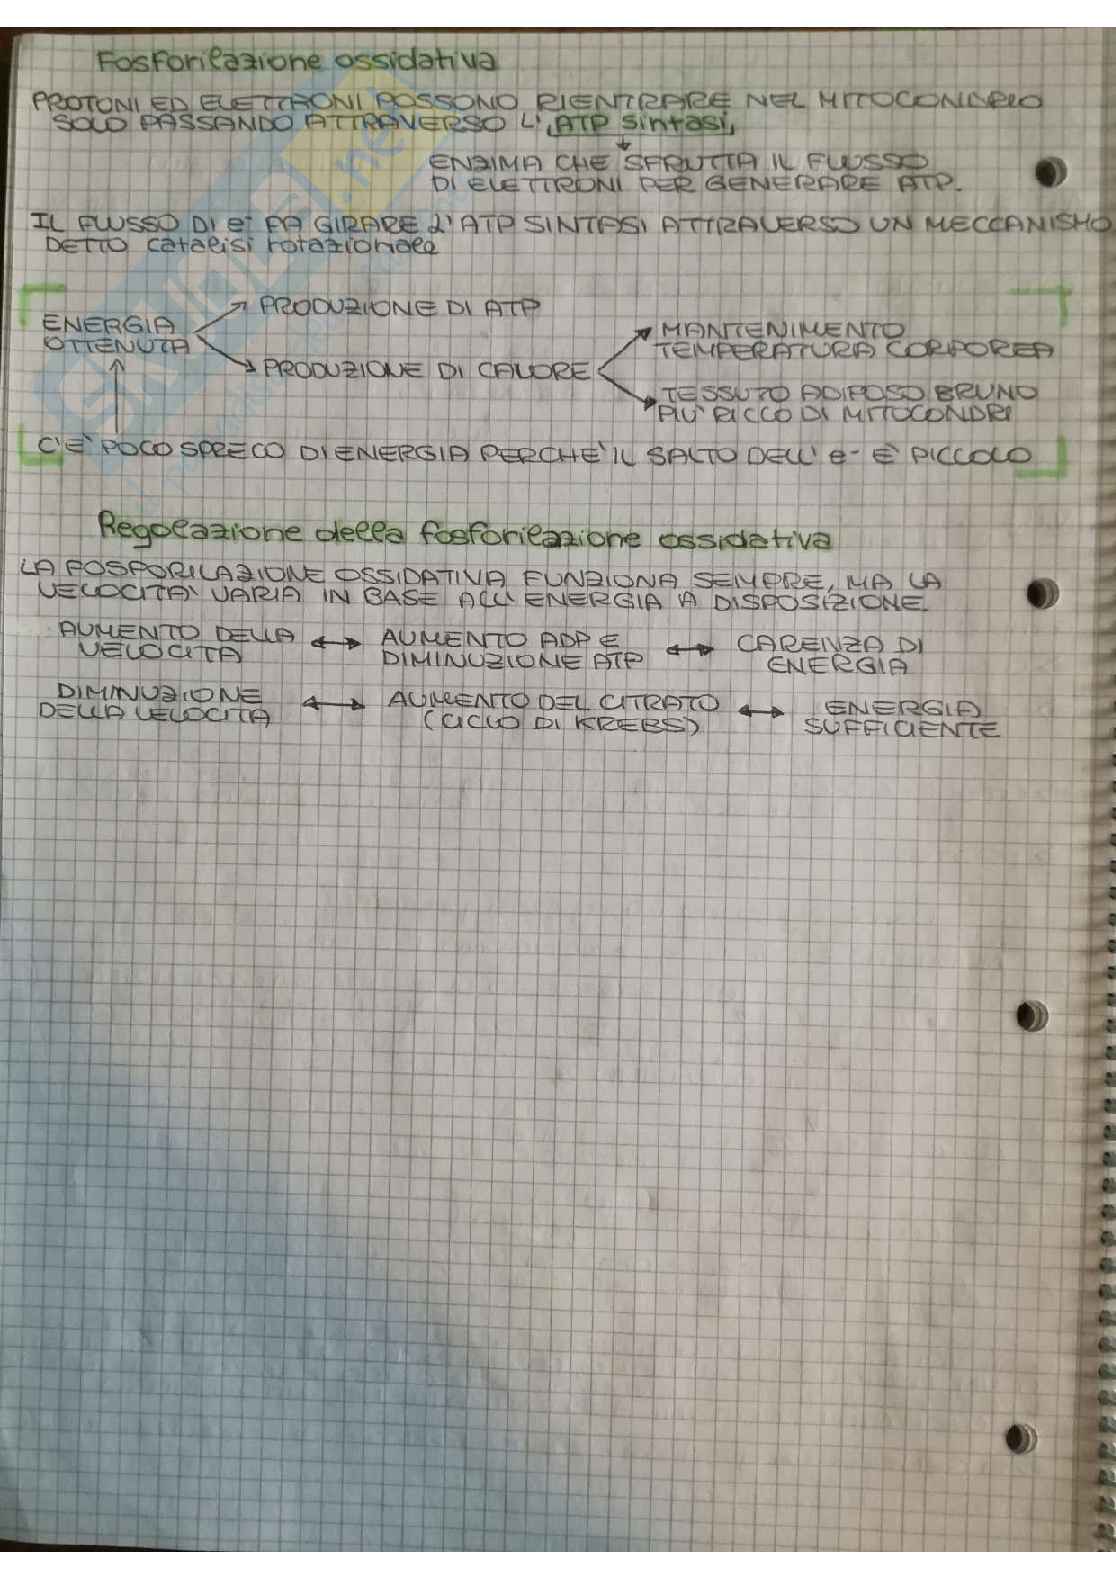 Fosforilazione ossidativa
PROTONI ED ELETTRONI POSSONO RIENTRARE NEL MITOCONDRIO
SOLO PASSANDO ATTRAVERSO L' ATP sintasi
ENZIMA CHE SFRUTTA IL FLUSSO
DI ELETTRONI PER GENERARE ATP.
IL FLUSSO DI e- FA GIRARE L'ATP SINTASI ATTRAVERSO UN MECCANISMO
DETTO catalisi rotazionale
PRODUZIONE DI ATP
ENERGIA
OTTENUTA
PRODUZIONE DI CALORE
MANTENIMENTO
TEMPERATURA CORPOREA
TESSUTO ADIPOSO BRUNO
PIU' RICCO DI MITOCONDRI
C'E' POCO SPRECO DI ENERGIA PERCHE' IL SALTO DELL' e- E' PICCOLO
Regolazione della fosforilazione ossidativa
LA FOSFORILAZIONE OSSIDATIVA FUNZIONA SEMPRE, MA LA
VELOCITA' VARIA IN BASE ALL' ENERGIA A DISPOSIZIONE.
AUMENTO DELLA VELOCITA ↔ AUMENTO ADP E DIMINUZIONE ATP ↔ CARENZA DI ENERGIA
DIMINUZIONE DELLA VELOCITA ↔ AUMENTO DEL CITRATO (CICLO DI KREBS) ↔ ENERGIA SUFFICIENTE
SKUOLA.net